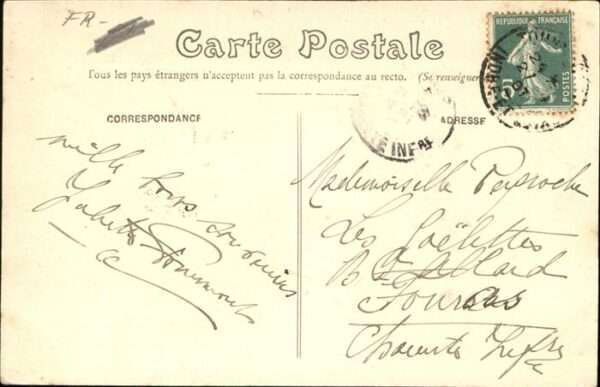 FR-
Carte Postale
Tous les pays étrangers n'acceptent pas la correspondance au recto. (Se renseigner
RÉPUBLIQUE FRANÇAISE
5
POSTES
CORRESPONDANCE
ADRESSE
E INFRE
mille bons souvenirs
Mademoiselle Peyroche
Les Goëlettes
B Allard
Fouras
Charente Infre